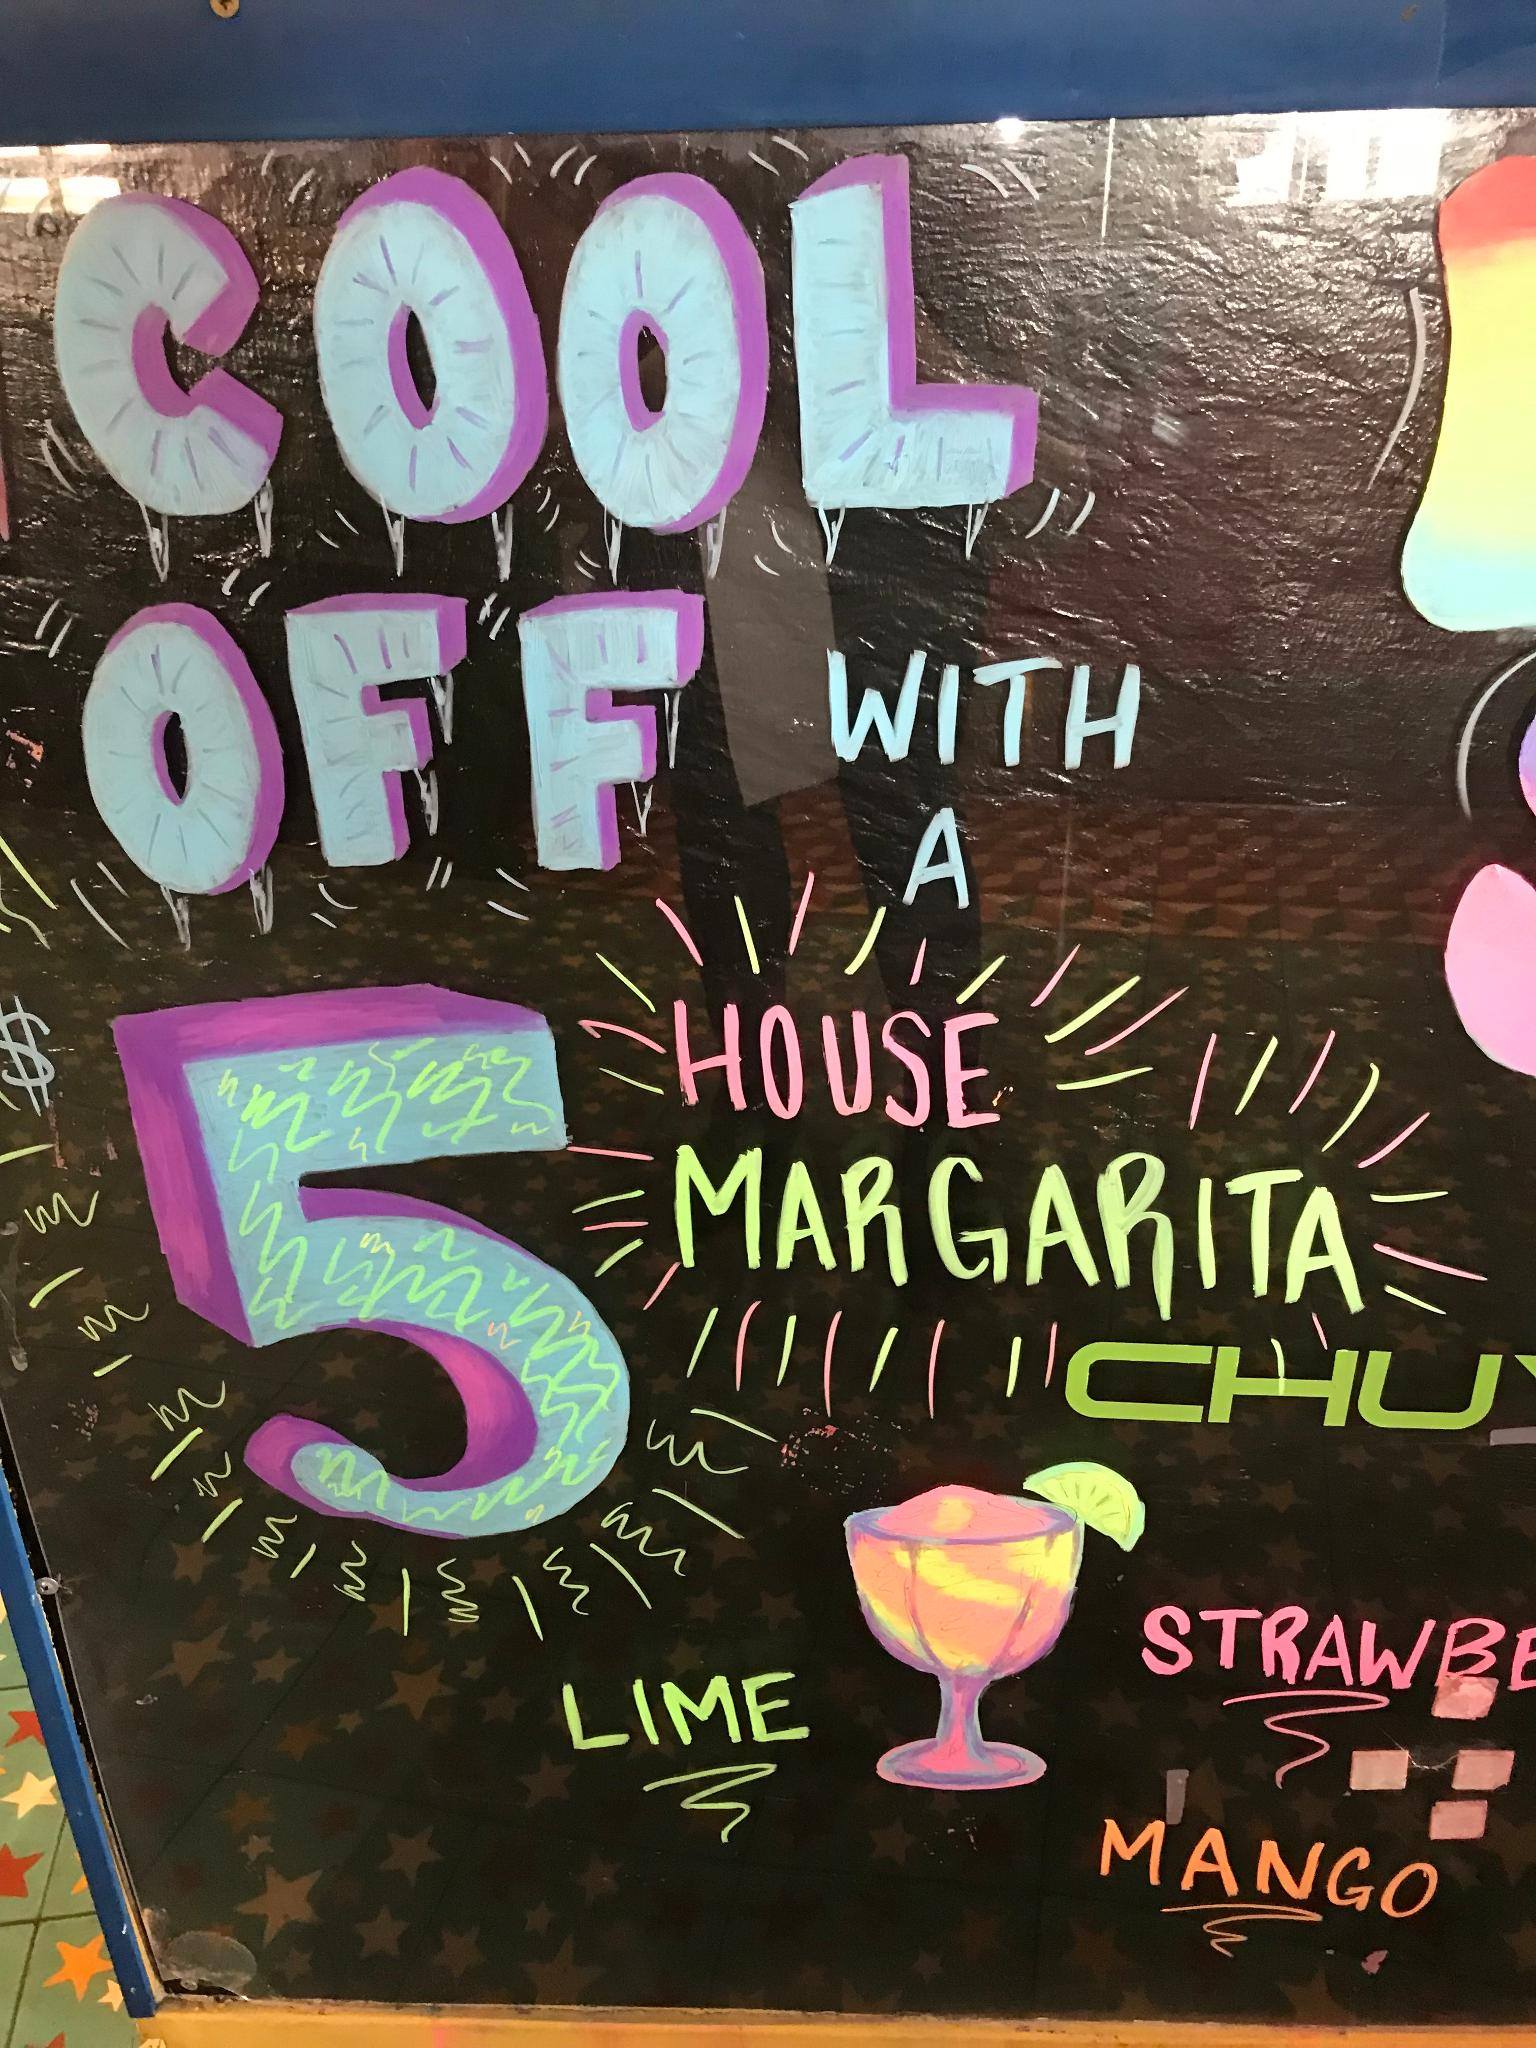 COOL
OFF WITH
A
$
5 HOUSE
MARGARITA
CHUY
STRAWBE
LIME
MANGO